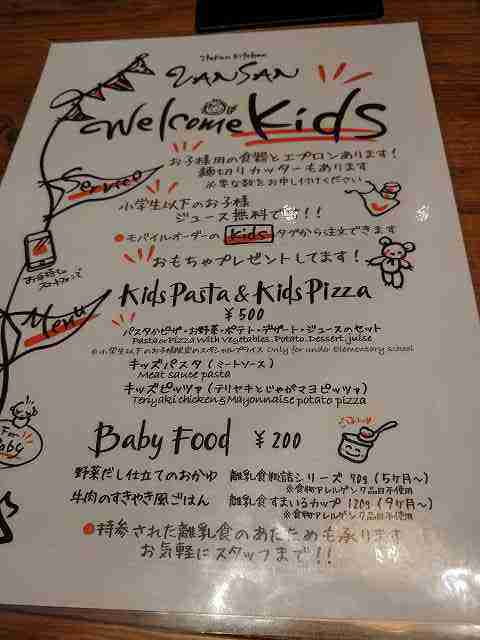 Italian Kitchen
VANSAN
Welcome Kids
お子様用の食器とエプロンあります!
Service
麺切りカッターもあります
※必要な数をお申し付けください
小学生以下のお子様
ジュース無料です!!
●モバイルオーダーの Kids タグから注文できます
おもちゃプレゼントしてます!
お手持ちの
スマートフォンで
Menu
Kids Pasta & Kids Pizza
¥500
パスタかピザ・お野菜・ポテト・デザート・ジュースのセット
Pasta or Pizza with Vegetables. Potato. Dessert. juice
※小学生以下のお子様限定のスペシャルプライス Only for under Elementary school
キッズパスタ (ミートソース)
Meat sauce pasta
キッズピッツァ (テリヤキとじゃがマヨピッツァ)
Teriyaki chicken & Mayonnaise potato pizza
For Baby
Baby Food ¥200
野菜だし仕立てのおかゆ 離乳食瓶詰シリーズ 90g (5ヶ月~)
※食物アレルゲン7品目不使用
牛肉のすきやき風ごはん 離乳食すまいるカップ 120g (9ヶ月~)
※食物アレルゲン7品目不使用
●持参された離乳食のあたためも承ります
お気軽にスタッフまで!!